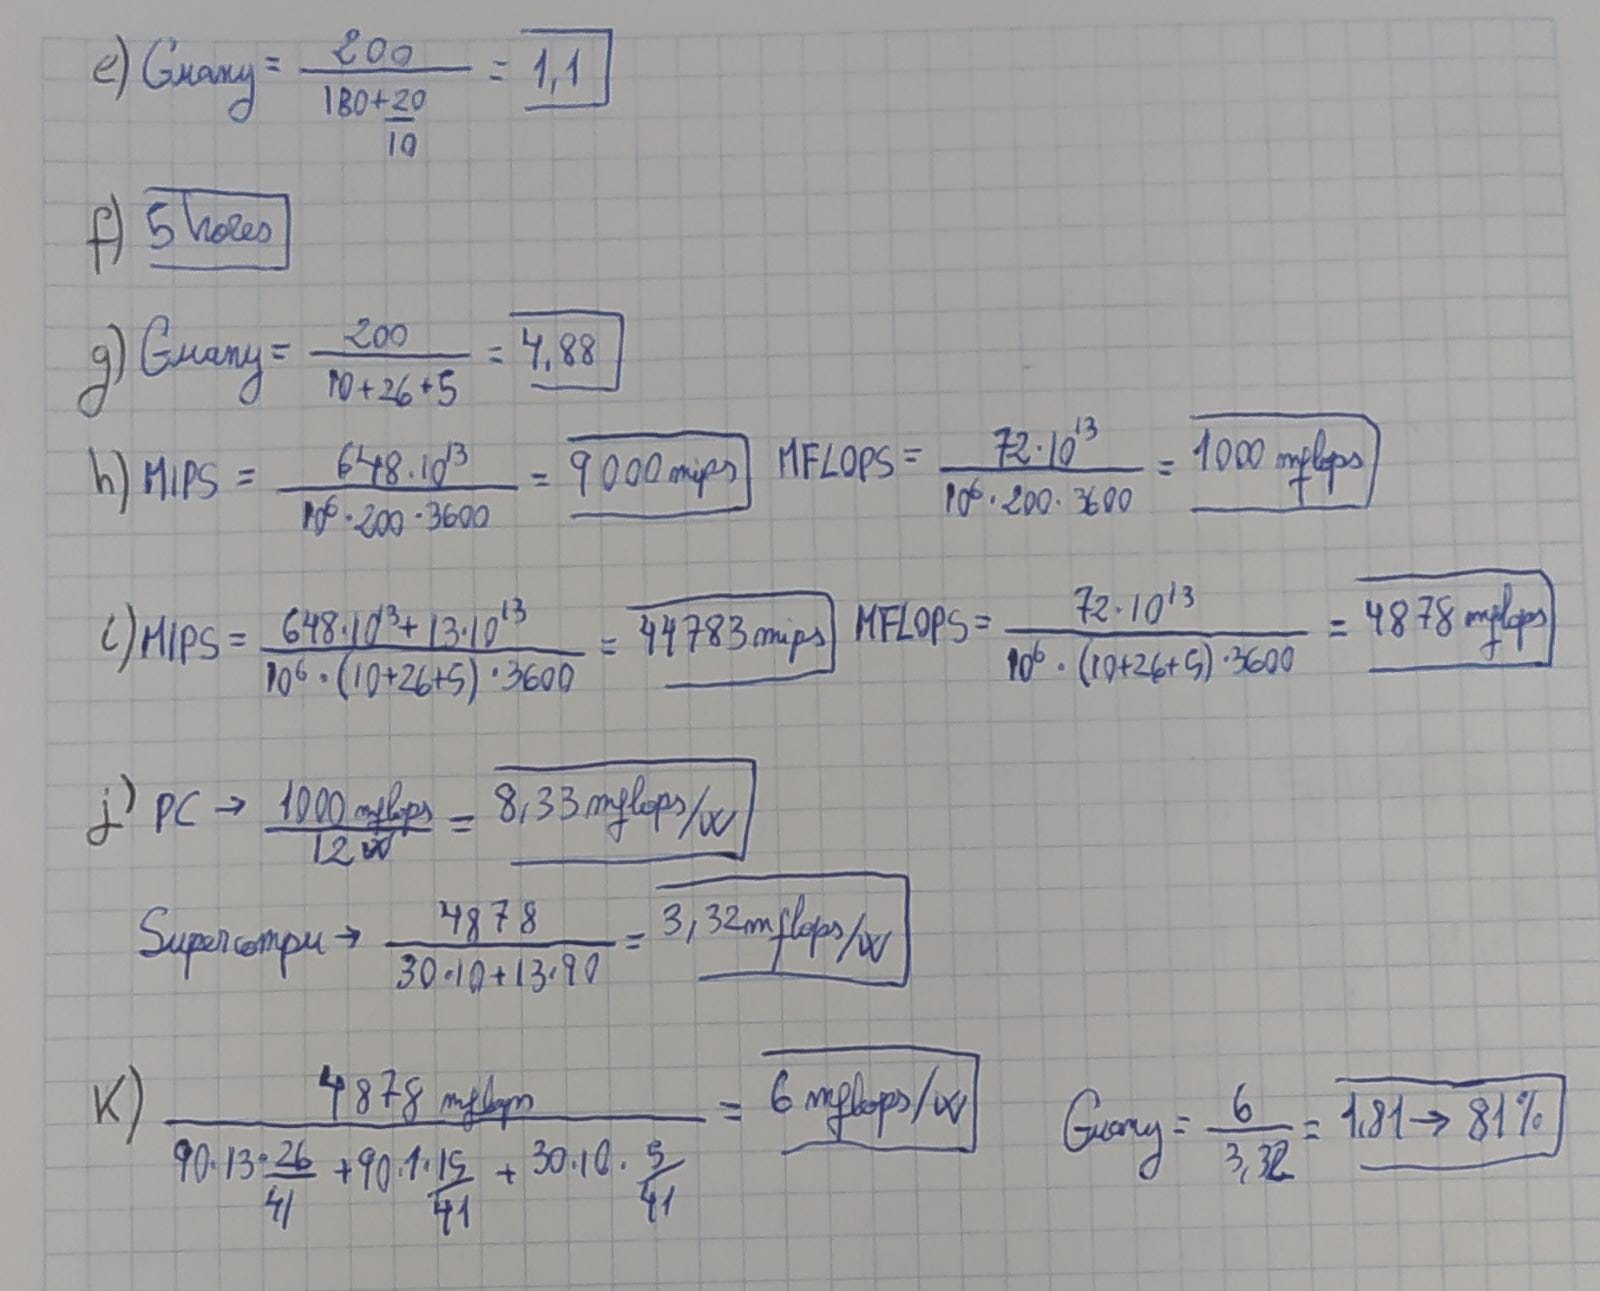 e) Guany = 200 / (180 + 20/10) = 1,1
f) 5 hores
g) Guany = 200 / (10+26+5) = 4,88
h) MIPS = 648·10^13 / (10^6·200·3600) = 9000 mips MFLOPS = 72·10^13 / (10^6·200·3600) = 1000 mflops
i) MIPS = (648·10^13 + 13·10^13) / (10^6·(10+26+5)·3600) = 44783 mips MFLOPS = 72·10^13 / (10^6·(10+26+5)·3600) = 4878 mflops
j) PC → 1000 mflops / 12 w = 8,33 mflops/w
Supercompu → 4878 / (30·10+13·90) = 3,32 mflops/w
K) 4878 mflops / (90·13·26/41 + 90·1·15/41 + 30·10·5/41) = 6 mflops/w Guany = 6 / 3,32 = 1,81 → 81%